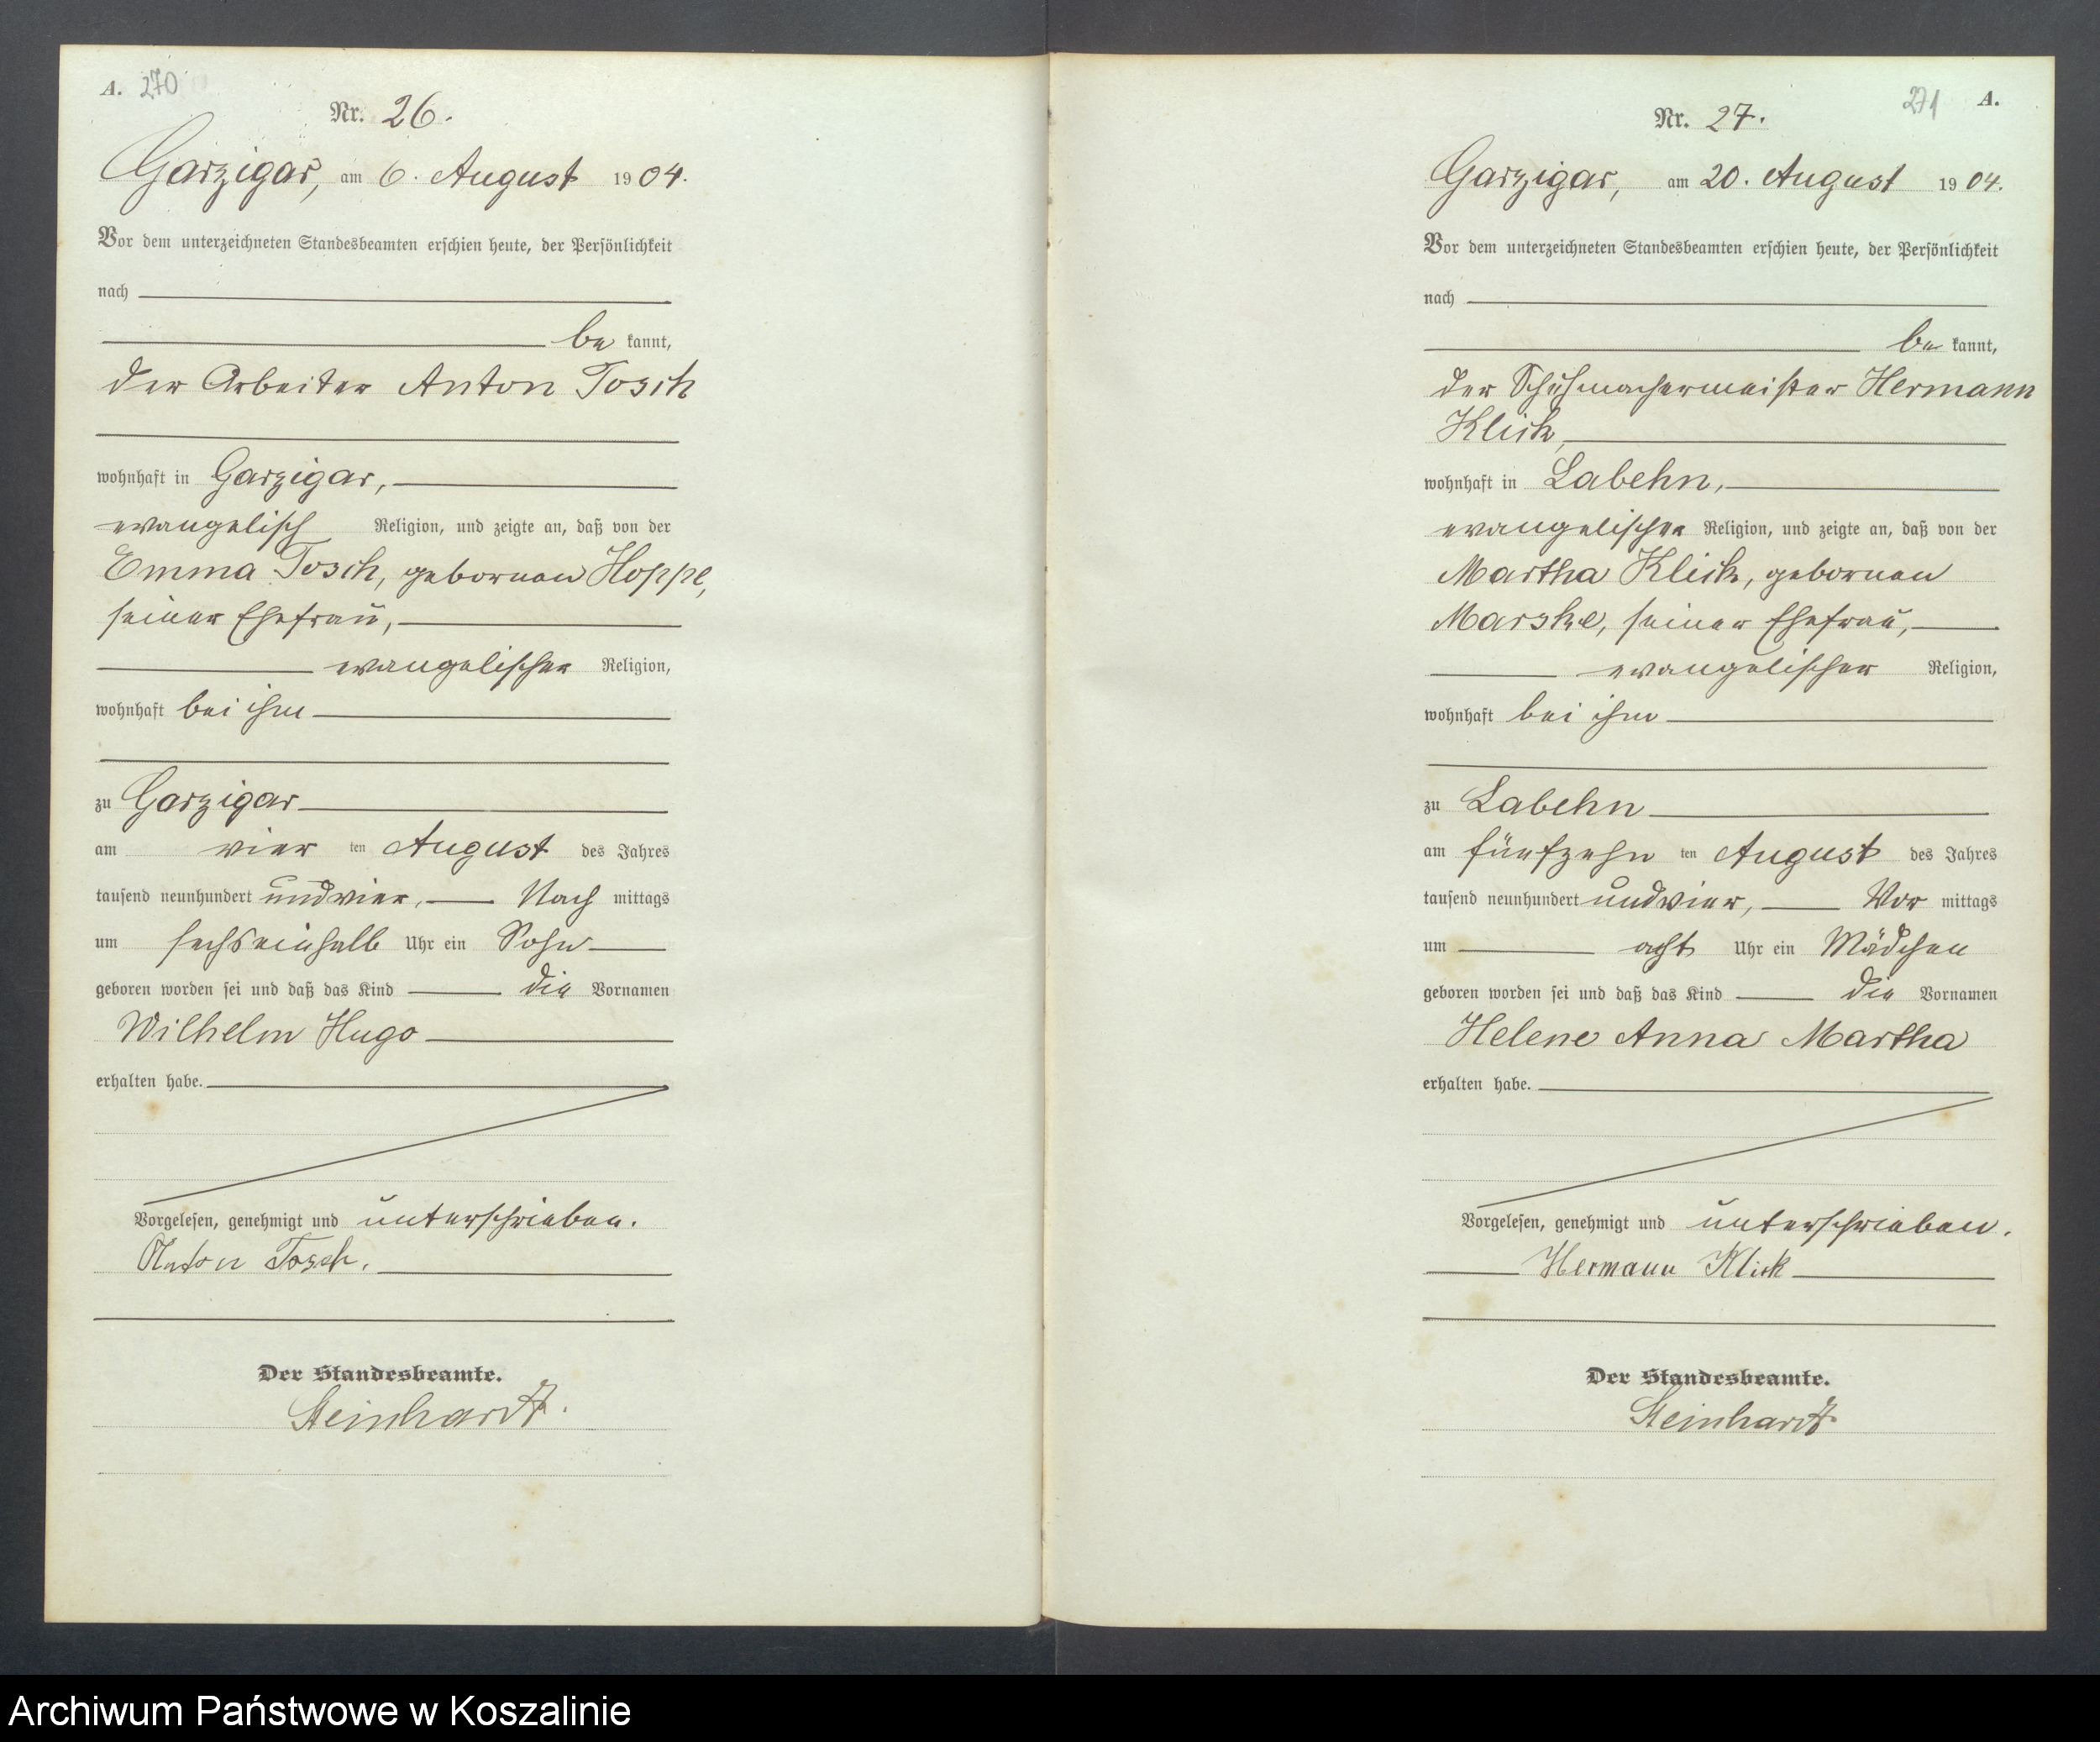 A. 270
Nr. 26.
Garzigar, am 6. August 1904.
Vor dem unterzeichneten Standesbeamten erschien heute, der Persönlichkeit
nach
be kannt,
der Arbeiter Anton Tosch
wohnhaft in Garzigar,
evangelisch Religion, und zeigte an, daß von der
Emma Tosch, geborenen Hoppe,
seiner Ehefrau,
evangelischer Religion,
wohnhaft bei ihm
zu Garzigar
am vier ten August des Jahres
tausend neunhundert und vier, Nach mittags
um sechs einhalb Uhr ein Sohn
geboren worden sei und daß das Kind die Vornamen
Wilhelm Hugo
erhalten habe.
Vorgelesen, genehmigt und unterschrieben.
Anton Tosch.
Der Standesbeamte.
Steinhardt.
271 A.
Nr. 27.
Garzigar, am 20. August 1904.
Vor dem unterzeichneten Standesbeamten erschien heute, der Persönlichkeit
nach
be kannt,
der Schuhmachermeister Hermann
Klick,
wohnhaft in Labehn,
evangelischer Religion, und zeigte an, daß von der
Martha Klick, geborenen
Marske, seiner Ehefrau,
evangelischer Religion,
wohnhaft bei ihm
zu Labehn
am fünfzehn ten August des Jahres
tausend neunhundert und vier, Vor mittags
um acht Uhr ein Mädchen
geboren worden sei und daß das Kind die Vornamen
Helene Anna Martha
erhalten habe.
Vorgelesen, genehmigt und unterschrieben.
Hermann Klick
Der Standesbeamte.
Steinhardt
Archiwum Państwowe w Koszalinie